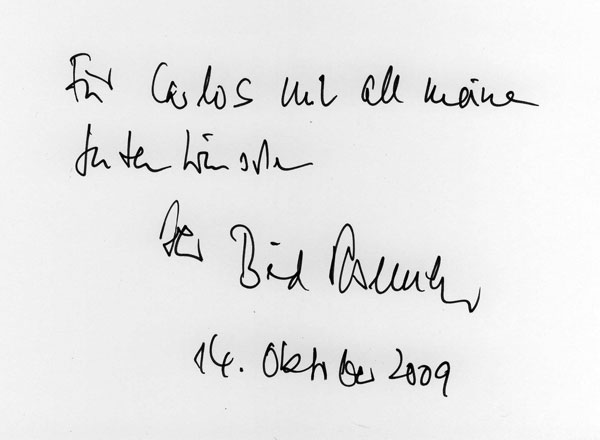 Für Carlos mit all meinen
guten Wünschen
14. Oktober 2009